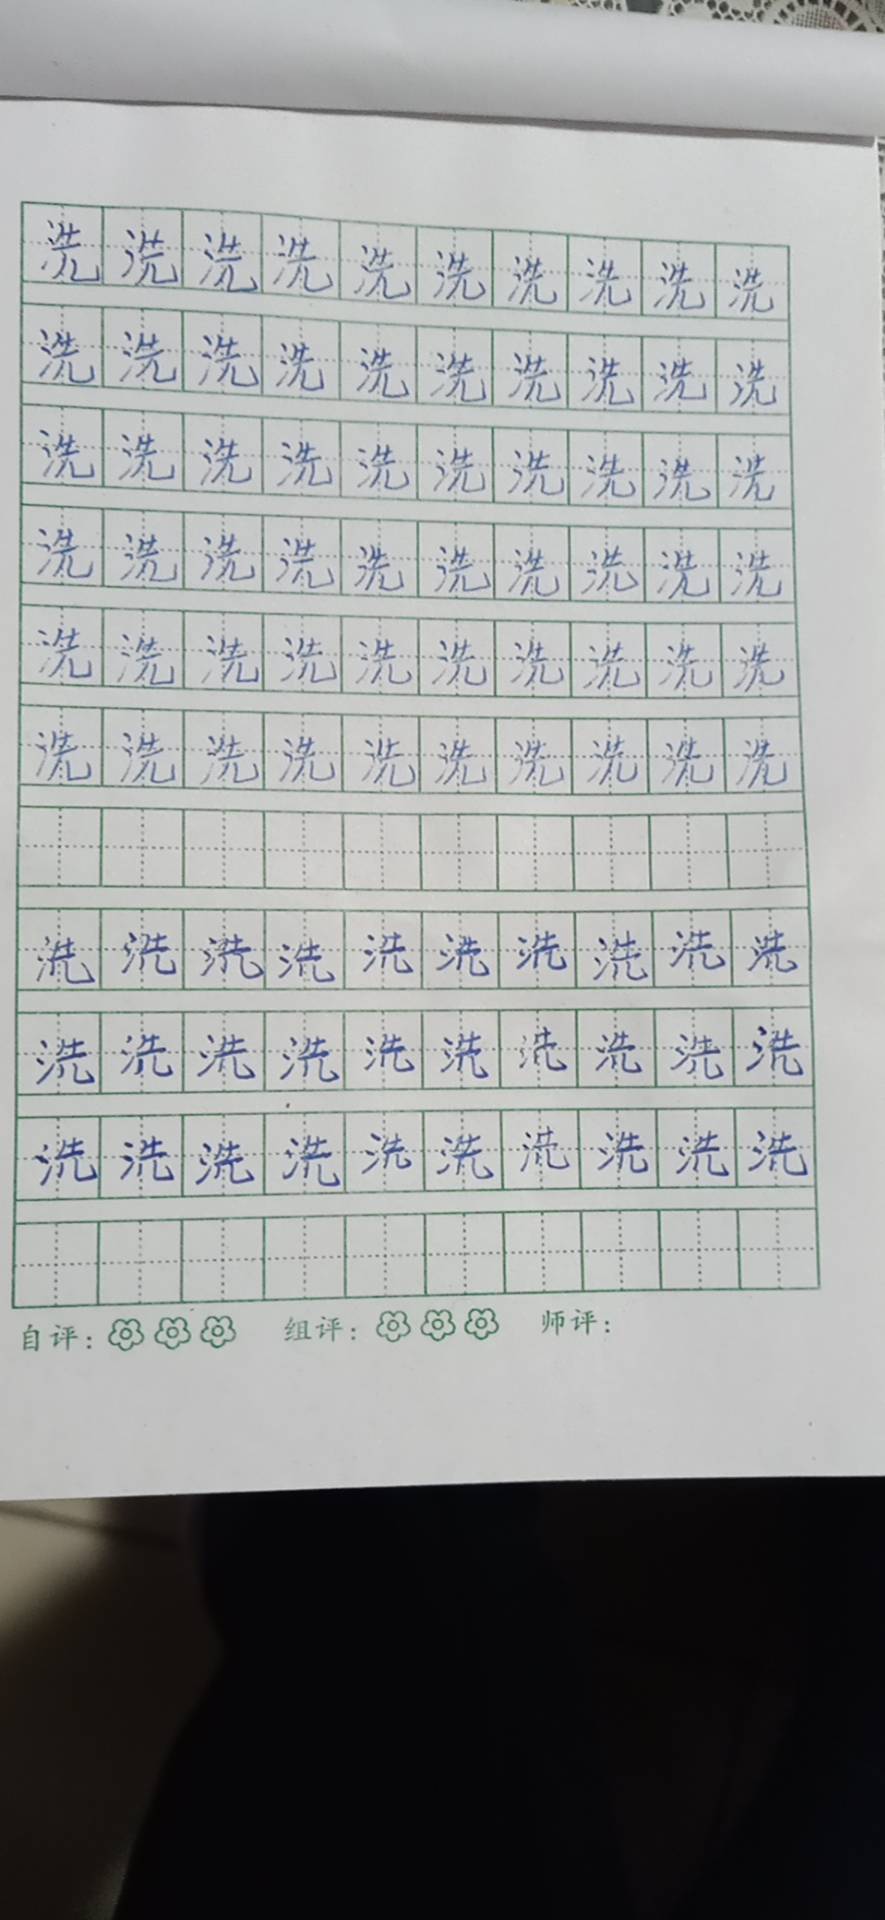 洗洗洗洗洗洗洗洗洗洗
洗洗洗洗洗洗洗洗洗洗
洗洗洗洗洗洗洗洗洗洗
洗洗洗洗洗洗洗洗洗洗
洗洗洗洗洗洗洗洗洗洗
洗洗洗洗洗洗洗洗洗洗
洗洗洗洗洗洗洗洗洗洗
洗洗洗洗洗洗洗洗洗洗
洗洗洗洗洗洗洗洗洗洗
自评： 组评： 师评：